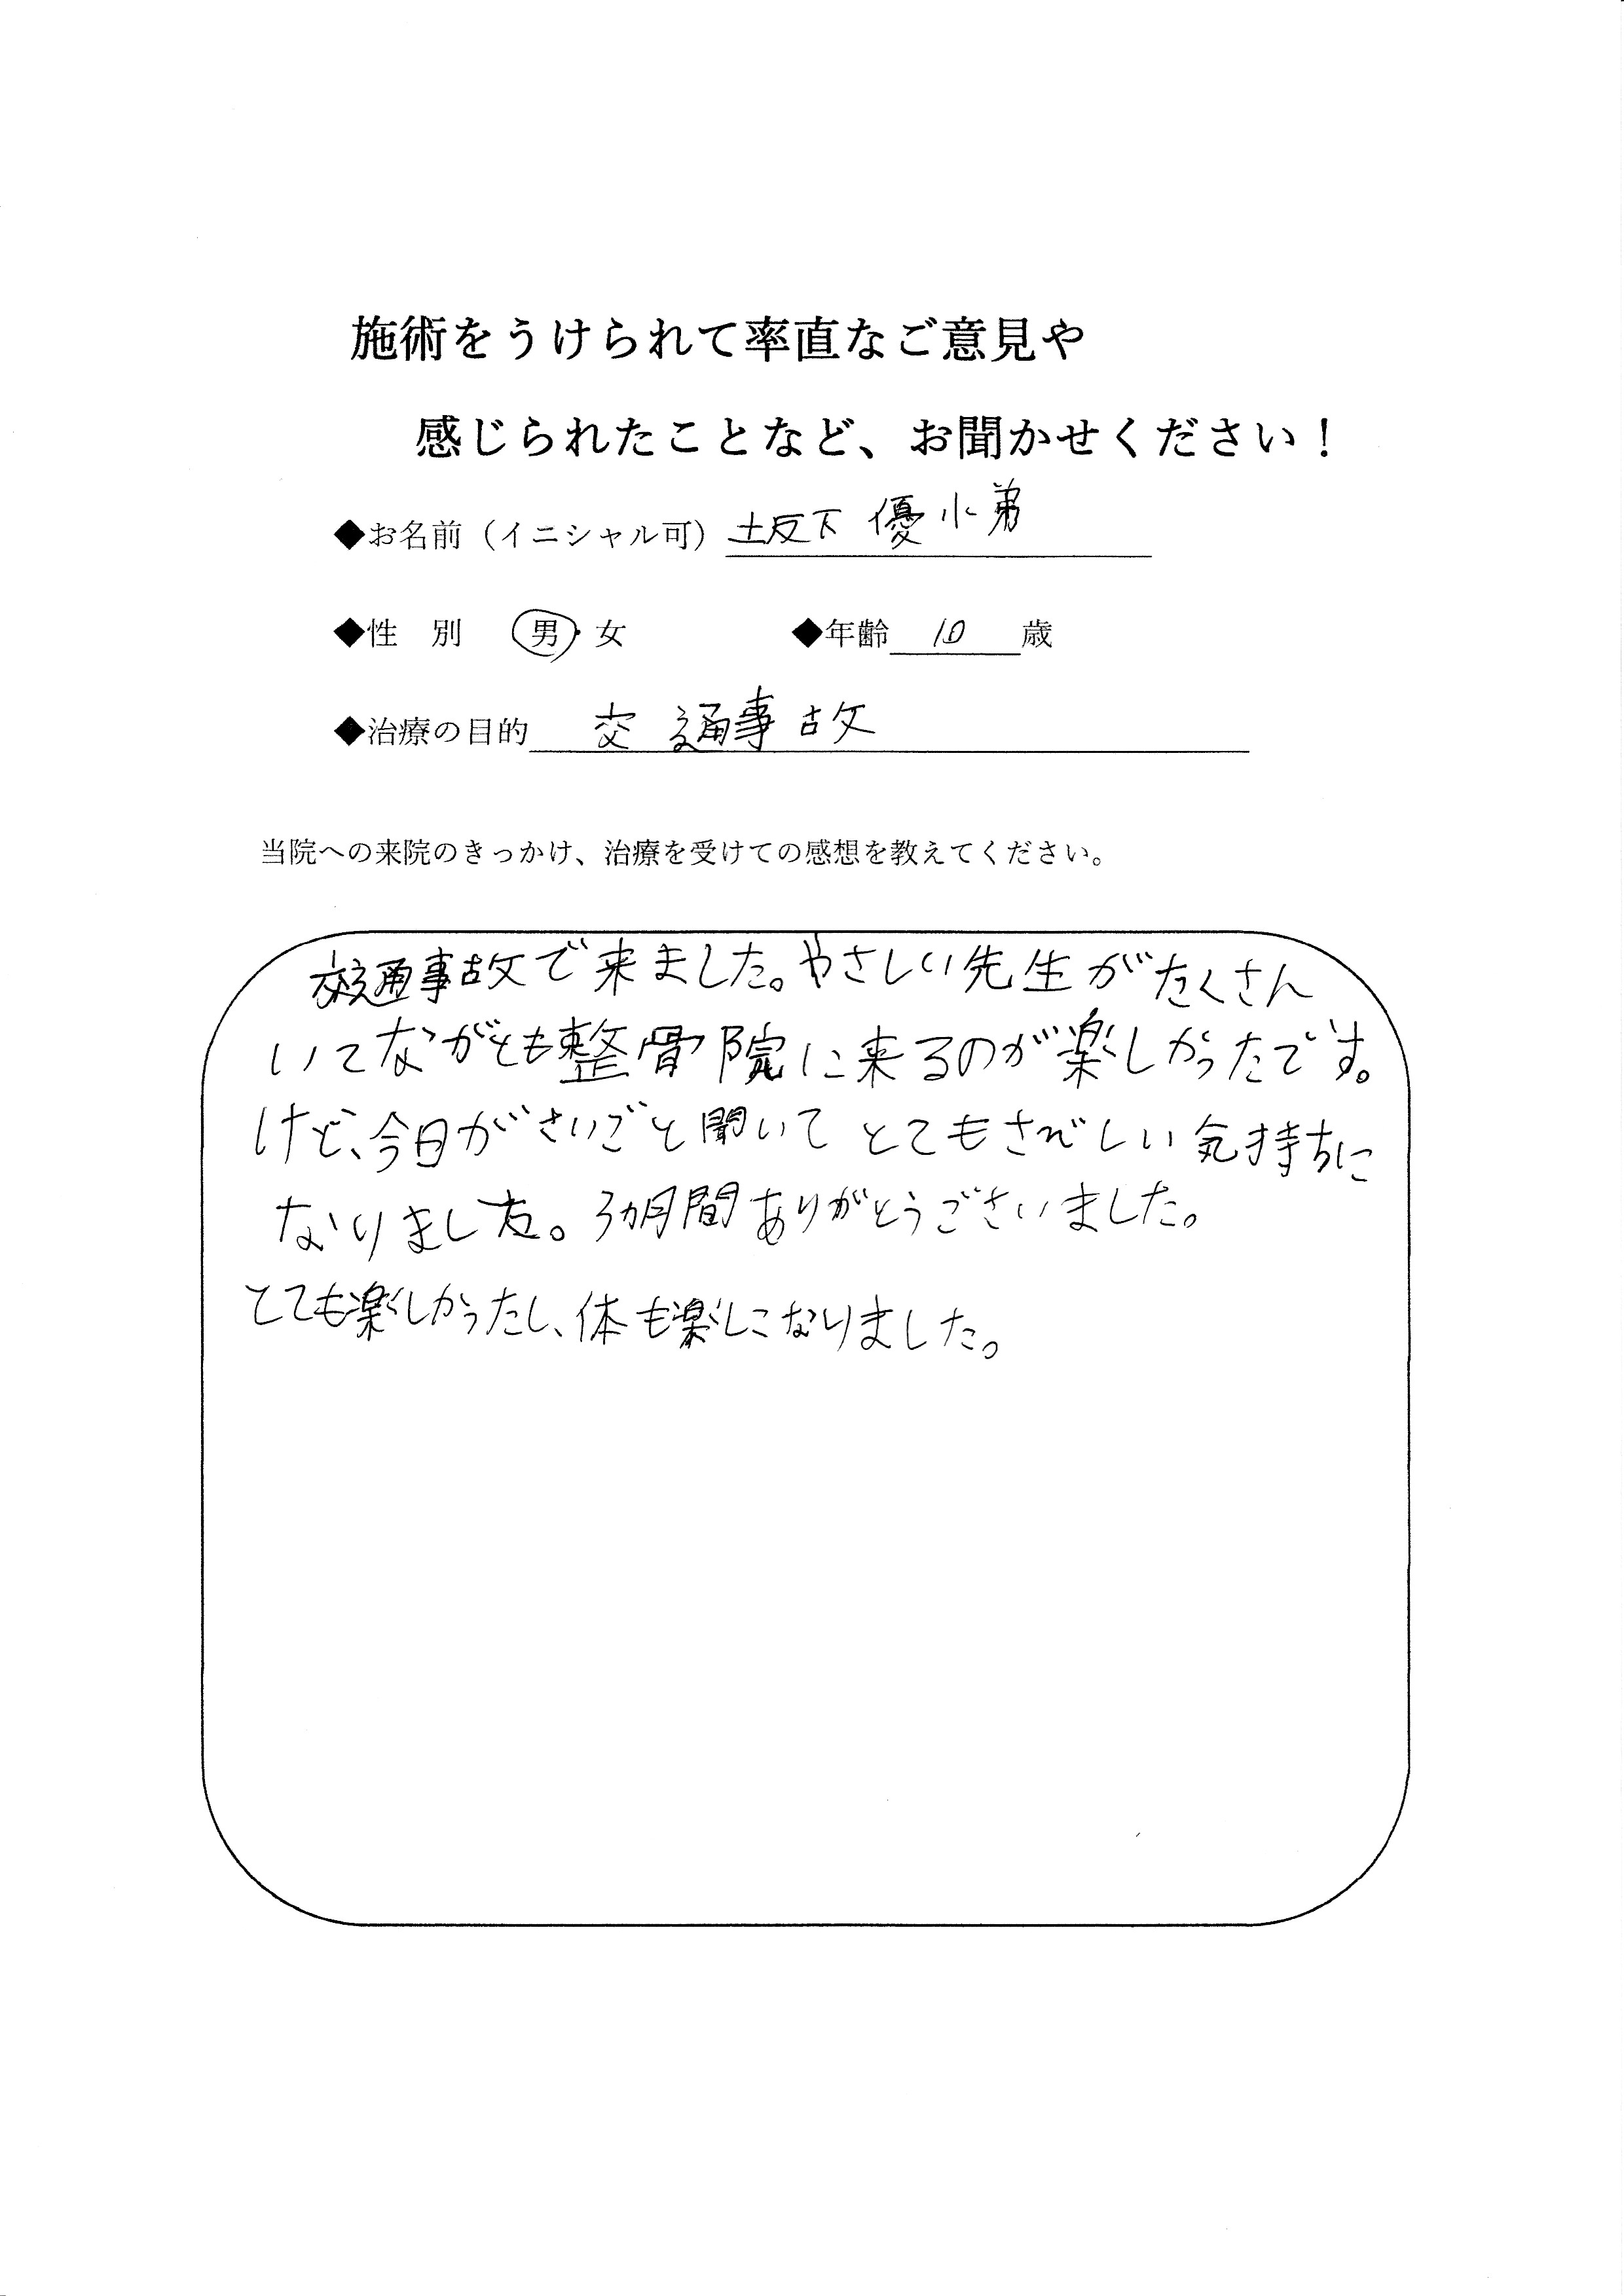 施術をうけられて率直なご意見や
感じられたことなど、お聞かせください！
◆お名前（イニシャル可） 坂下 優小弟
◆性 別 男・女 ◆年齢 10 歳
◆治療の目的 交通事故
当院への来院のきっかけ、治療を受けての感想を教えてください。
交通事故で来ました。やさしい先生がたくさん
いてながとも整骨院に来るのが楽しかったです。
けど、今日がさいごと聞いてとてもさびしい気持ちに
なりました。3カ月間ありがとうございました。
とても楽しかったし、体も楽しこなりました。